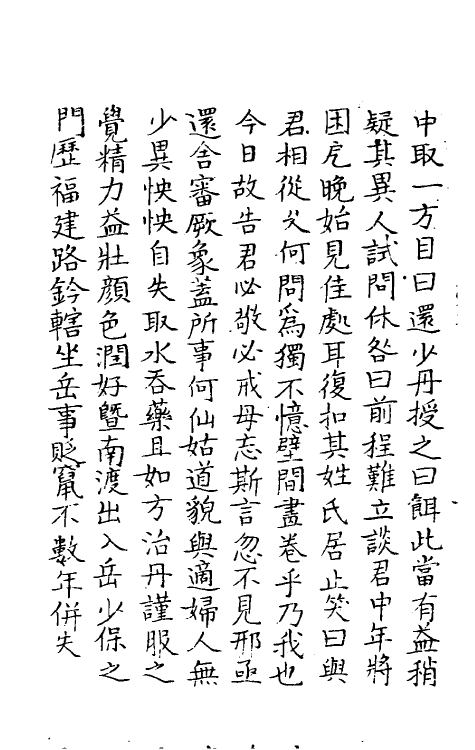 中取一方目曰還少丹授之曰餌此當有益稍
疑其異人試問休咎曰前程難立談君中年將
困厄晚始見佳處耳復扣其姓氏居止笑曰與
君相從久何問爲獨不憶壁間畫卷乎乃我也
今日故告君必敬必戒毋忘斯言忽不見邢亟
還舍審厥象蓋所事何仙姑道貌與適婦人無
少異怏怏自失取水吞藥且如方治丹謹服之
覺精力益壯顔色潤好暨南渡出入岳少保之
門歷福建路鈐轄坐岳事貶竄不數年併失